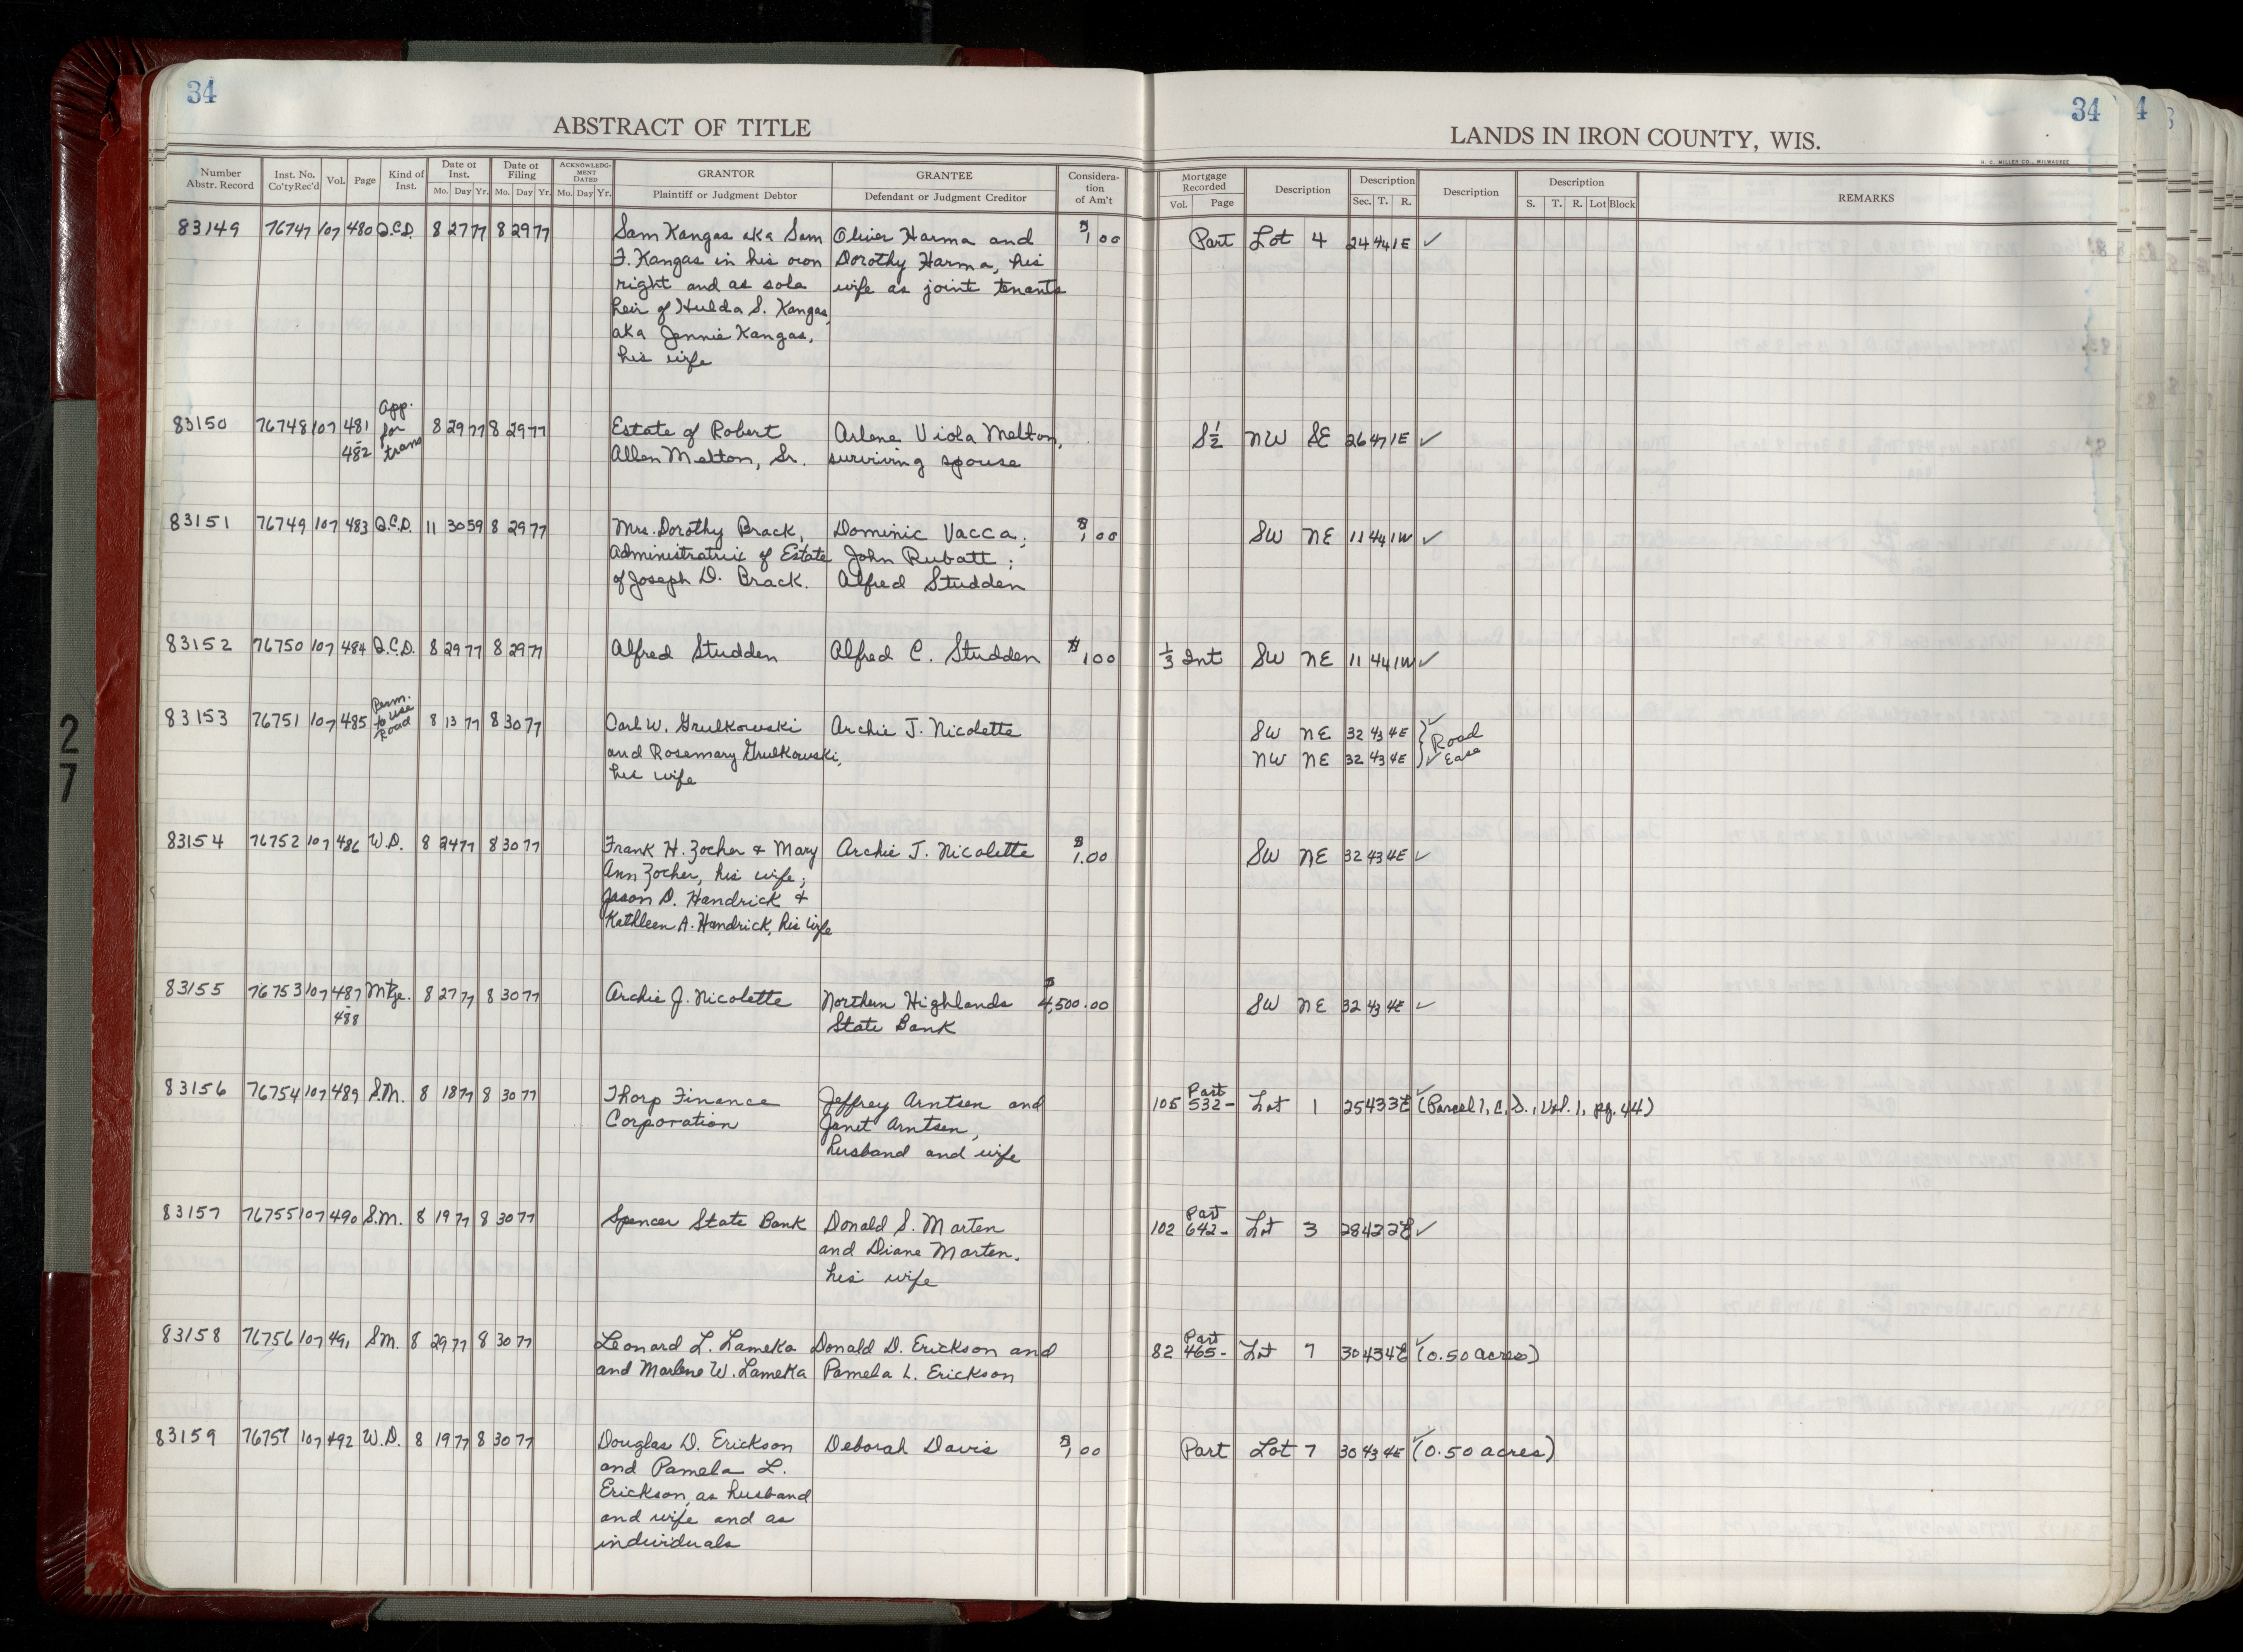 34
34
4
ABSTRACT OF TITLE
LANDS IN IRON COUNTY, WIS.
H. C. MILLER CO., MILWAUKEE
Number Abstr. Record
Inst. No. Co'ty Rec'd
Vol.
Page
Kind of Inst.
Date of Inst.
Mo. Day Yr.
Date of Filing
Mo. Day Yr.
ACKNOWLEDGMENT DATED
Mo. Day Yr.
GRANTOR
Plaintiff or Judgment Debtor
GRANTEE
Defendant or Judgment Creditor
Consideration of Am't
Mortgage Recorded
Vol. Page
Description
Description
Sec. T. R.
Description
Description
S. T. R. Lot Block
REMARKS
83149 76747 107 480 Q.C.D. 8 27 77 8 29 77 Sam Kangas aka Sam Oliver Harma and $1.00 Part Lot 4 24 44 1E ✓
F. Kangas in his own Dorothy Harma, his
right and as sole wife as joint tenants
heir of Hulda S. Kangas,
aka Jennie Kangas,
his wife
83150 76748 107 481-482 App. for trans 8 29 77 8 29 77 Estate of Robert Arlene Viola Melton, S½ NW SE 26 47 1E ✓
Allen Melton, Sr. surviving spouse
83151 76749 107 483 Q.C.D. 11 30 59 8 29 77 Mrs. Dorothy Brack, Dominic Vacca; $1.00 SW NE 11 44 1W ✓
Administratrix of Estate John Rubatt;
of Joseph D. Brack. Alfred Studden
83152 76750 107 484 Q.C.D. 8 29 77 8 29 77 Alfred Studden Alfred C. Studden $1.00 1/3 Int SW NE 11 44 1W ✓
83153 76751 107 485 Perm. to use Road 8 13 77 8 30 77 Carl W. Grulkowski Archie J. Nicolette SW NE 32 43 4E ✓ } Road
and Rosemary Grulkowski, NW NE 32 43 4E ✓ } Ease
his wife
83154 76752 107 486 W.D. 8 24 77 8 30 77 Frank H. Zocher & Mary Archie J. Nicolette $1.00 SW NE 32 43 4E ✓
Ann Zocher, his wife;
Jason D. Handrick &
Kathleen A. Handrick, his wife
83155 76753 107 487-488 Mtge. 8 27 77 8 30 77 Archie J. Nicolette Northern Highlands $4,500.00 SW NE 32 43 4E ✓
State Bank
83156 76754 107 489 S.M. 8 18 77 8 30 77 Thorp Finance Jeffrey Arntsen and 105 532- Part Lot 1 25 43 3E ✓ (Parcel 1, C.S., Vol. 1, pg. 44)
Corporation Janet Arntsen,
husband and wife
83157 76755 107 490 S.M. 8 19 77 8 30 77 Spencer State Bank Donald S. Marten 102 642- Part Lot 3 28 42 2E ✓
and Diane Marten.
his wife
83158 76756 107 491 S.M. 8 29 77 8 30 77 Leonard L. Lameka Donald D. Erickson and 82 465- Part Lot 7 30 43 4E ✓ (0.50 acres)
and Marlene W. Lameka Pamela L. Erickson
83159 76757 107 492 W.D. 8 19 77 8 30 77 Douglas D. Erickson Deborah Davis $1.00 Part Lot 7 30 43 4E ✓ (0.50 acres)
and Pamela L.
Erickson, as husband
and wife and as
individuals
27